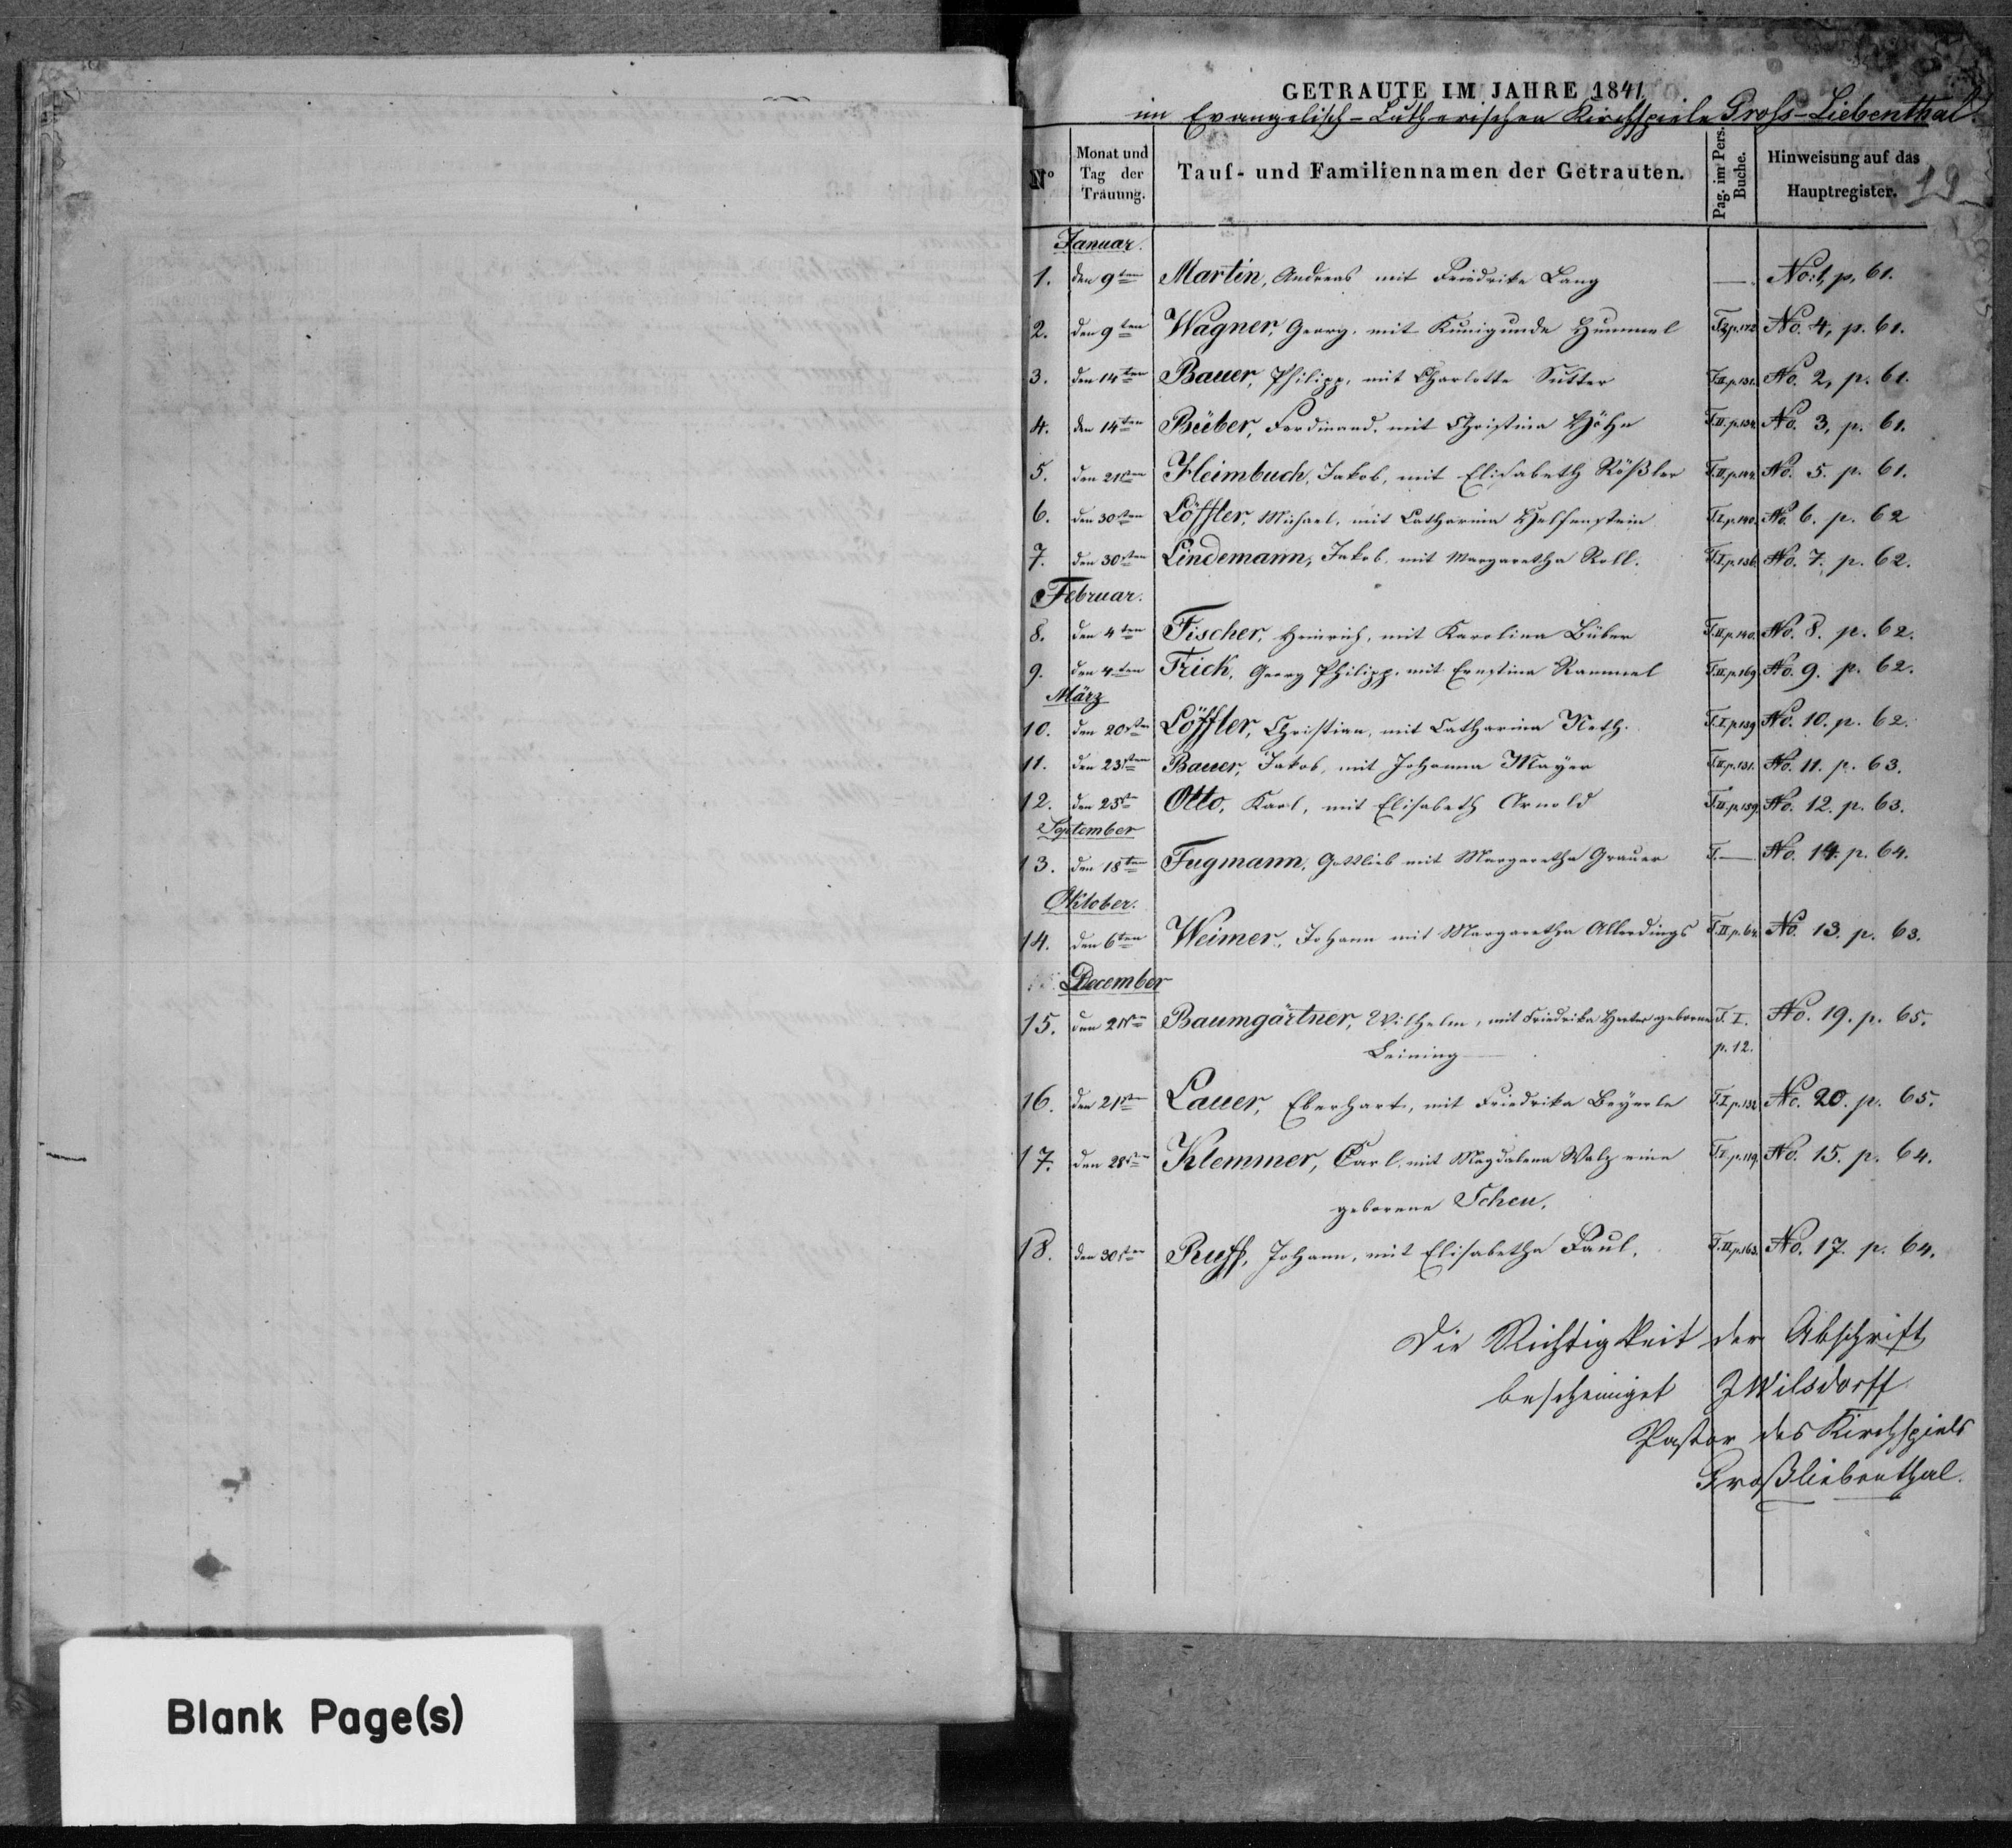 GETRAUTE IM JAHRE 1841.
im Evangelisch-Lutherischen Kirchspiele Gross-Liebenthal.
No Monat und Tag der Trauung. Tauf- und Familiennamen der Getrauten. Pag. im Pers. Buche. Hinweisung auf das Hauptregister. 19
Januar.
1. den 9ten Martin, Andreas mit Friedrike Lang —. No. 1, p. 61.
2. den 9ten Wagner, Georg, mit Kunigunde Hummel T.I p.172 No. 4, p. 61.
3. den 14ten Bauer, Philipp, mit Charlotte Sutter T.II.p.131. No. 2, p. 61.
4. den 14ten Büber, Ferdinand, mit Christina Höhn T.II.p.134 No. 3, p. 61.
5. den 21sten Heimbuch, Jakob, mit Elisabeth Rößler T.II.p.144. No. 5. p. 61.
6. den 30sten Löffler, Michael, mit Catharina Helfenstein T.I.p.140. No. 6. p. 62
7. den 30sten Lindemann, Jakob, mit Margaretha Roll. T.I.p.136. No. 7. p. 62.
Februar.
8. den 4ten Fischer, Heinrich, mit Karolina Büber T.II.p.140. No. 8. p. 62.
9. den 4ten Frick, Georg Philipp, mit Ernstina Rammel T.II.p.169. No. 9. p. 62.
März
10. den 20sten Löffler, Christian, mit Catharina Neth. T.I.p.139 No. 10. p. 62.
11. den 23sten Bauer, Jakob, mit Johanna Mayer T.II.p.131. No. 11. p. 63.
12. den 25st Otto, Karl, mit Elisabeth Arnold T.II.p.159. No. 12. p. 63.
September
13. den 18ten Fugmann, Gottlieb mit Margaretha Grauer T.— No. 14. p. 64.
Oktober.
14. den 6ten Weimer, Johann mit Margaretha Allerdings T.II.p.64. No. 13. p. 63.
December
15. den 21sten Baumgärtner, Wilhelm, mit Friedrika Herter geborene T.I. No. 19. p. 65.
Leining — p. 12.
16. den 21sten Lauer, Eberhart, mit Friedrika Beyerle T.I.p.132 No. 20. p. 65.
17. den 28sten Klemmer, Carl, mit Magdalena Walz eine T.I.p.119. No. 15. p. 64.
geborene Scheu.
18. den 30sten Ruff, Johann, mit Elisabetha Faul. T.II.p.163. No. 17. p. 64.
Die Richtigkeit der Abschrift
bescheiniget J Wilsdorff
Pastor des Kirchspiels
Großliebenthal.
Blank Page(s)